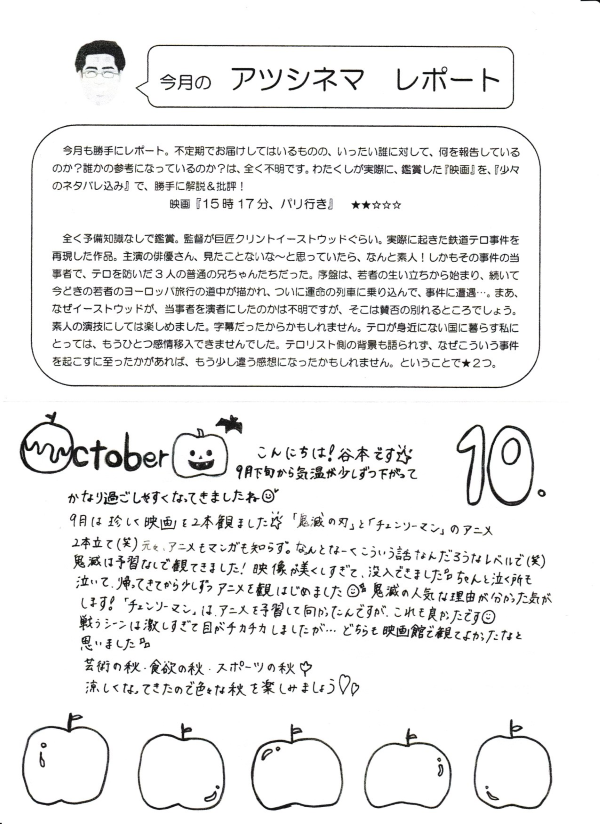 今月の アツシネマ レポート
今月も勝手にレポート。不定期でお届けしてはいるものの、いったい誰に対して、何を報告している
のか？誰かの参考になっているのか？は、全く不明です。わたくしが実際に、鑑賞した『映画』を、『少々
のネタバレ込み』で、勝手に解説＆批評！
映画『１５時１７分、パリ行き』 ★★☆☆☆
全く予備知識なしで鑑賞。監督が巨匠クリントイーストウッドぐらい。実際に起きた鉄道テロ事件を
再現した作品。主演の俳優さん、見たことないな～と思っていたら、なんと素人！しかもその事件の当
事者で、テロを防いだ３人の普通の兄ちゃんたちだった。序盤は、若者の生い立ちから始まり、続いて
今どきの若者のヨーロッパ旅行の道中が描かれ、ついに運命の列車に乗り込んで、事件に遭遇…。まあ、
なぜイーストウッドが、当事者を演者にしたのかは不明ですが、そこは賛否の別れるところでしょう。
素人の演技にしては楽しめました。字幕だったからかもしれません。テロが身近にない国に暮らす私に
とっては、もうひとつ感情移入できませんでした。テロリスト側の背景も語られず、なぜこういう事件
を起こすに至ったかがあれば、もう少し違う感想になったかもしれません。ということで★２つ。
October
10.
こんにちは！谷本です
9月下旬から気温が少しずつ下がって
かなり過ごしやすくなってきましたね
9月は珍しく映画を2本観ました 「鬼滅の刃」と「チェンソーマン」のアニメ
2本立て(笑) 元々、アニメもマンガも知らず。なんとなーくこういう話なんだろうなレベルで(笑)
鬼滅は予習なしで観てきました！映像が美しすぎて、没入できました ちゃんと泣く所も
泣いて、帰ってきてから少しずつアニメを観はじめました 鬼滅の人気な理由が分かった気が
します！「チェンソーマン」は、アニメを予習して向かったんですが、これも良かったです
戦うシーンは激しすぎて目がチカチカしましたが… どちらも映画館で観てよかったなと
思いました
芸術の秋・食欲の秋・スポーツの秋♡
涼しくなってきたので色々な秋を楽しみましょう♡♡